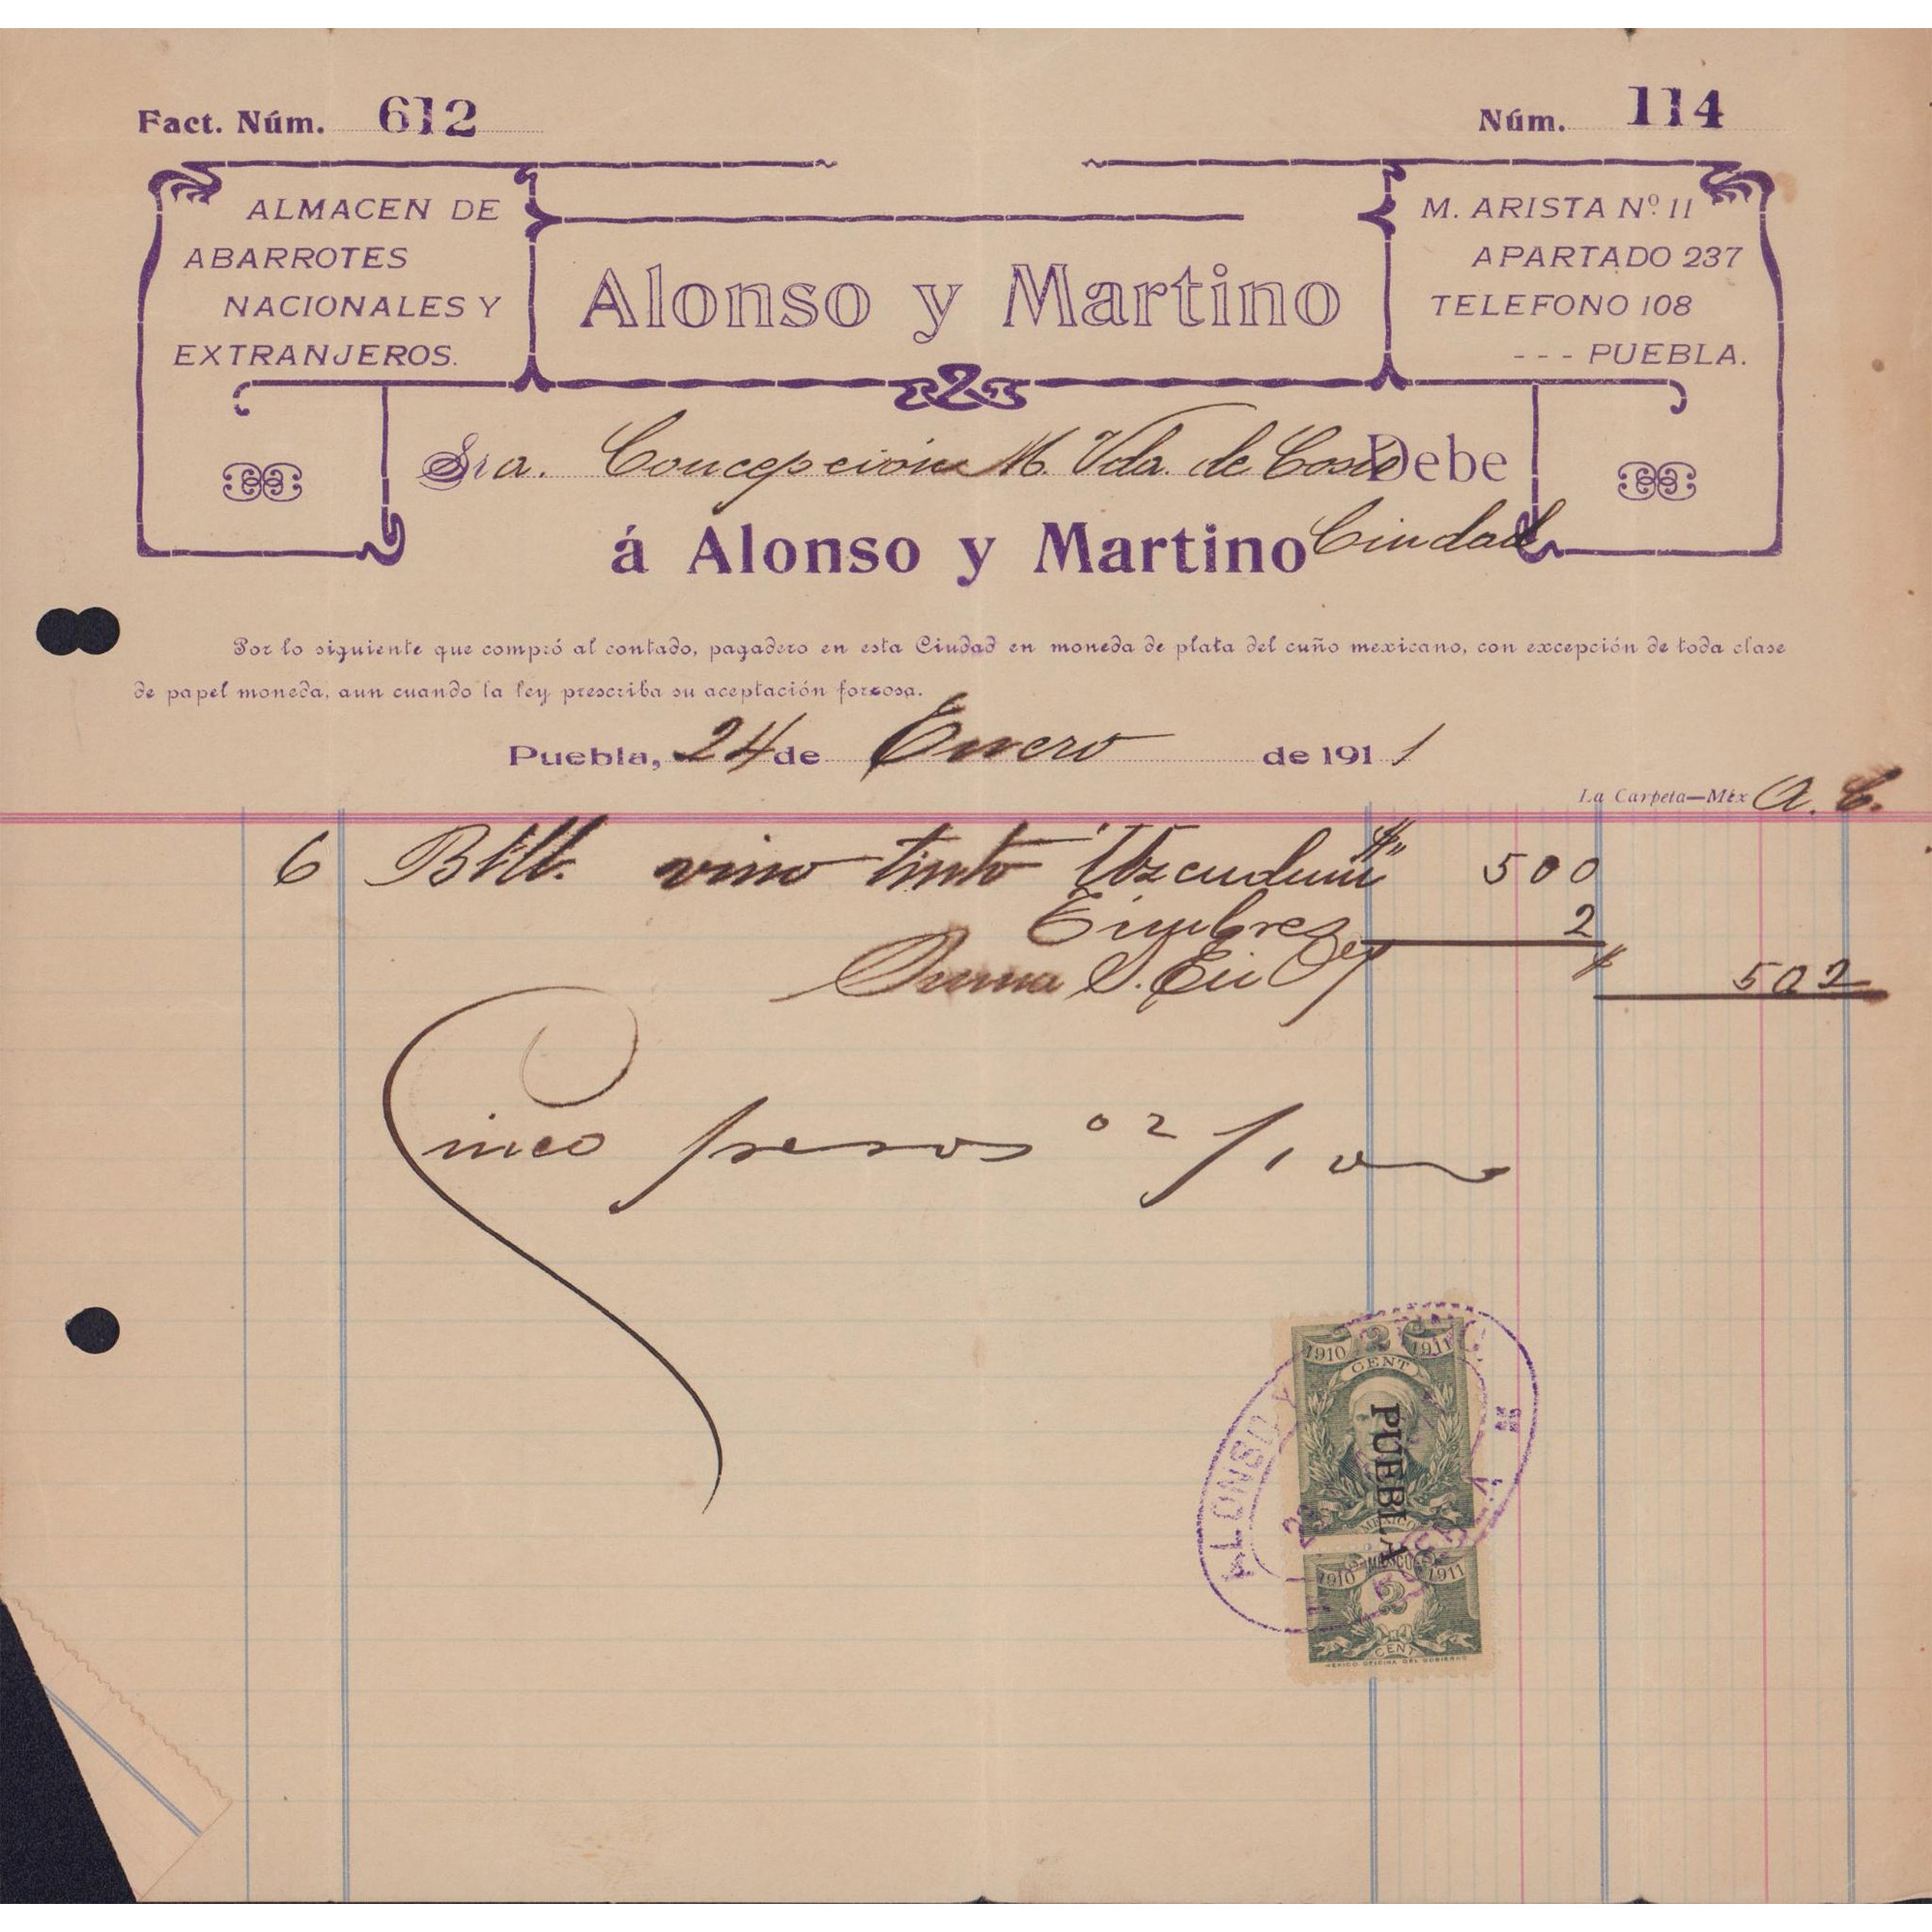 Fact. Núm. 612
Núm. 114
ALMACEN DE
ABARROTES
NACIONALES Y
EXTRANJEROS.
Alonso y Martino
M. ARISTA Nº 11
APARTADO 237
TELEFONO 108
--- PUEBLA.
Sra. Concepción M. Vda. de Debe
á Alonso y Martino Ciudad
Por lo siguiente que compró al contado, pagadero en esta Ciudad en moneda de plata del cuño mexicano, con excepción de toda clase
de papel moneda, aun cuando la ley prescriba su aceptación forzosa.
Puebla, 24 de Enero de 1911
La Carpeta—Méx A. C.
6 Btll. vino tinto $ 500
Timbres 2
Suma S. E. $ 502
Cinco pesos 02/100
1910 2 1911
CENT
PUEBLA
MEXICO
1910 1911
2
CENT
MEXICO OFICINA DEL GOBIERNO
ALONSO Y